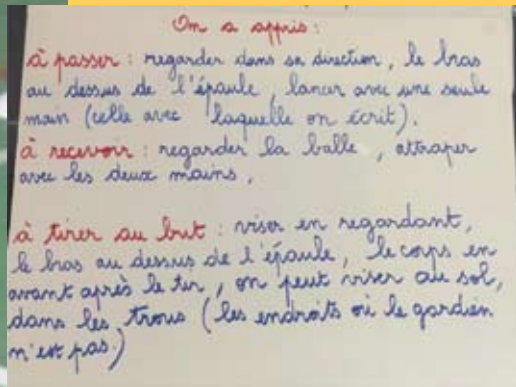 On a appris :
à passer : regarder dans sa direction, le bras
au dessus de l'épaule, lancer avec une seule
main (celle avec laquelle on écrit).
à recevoir : regarder la balle, attraper
avec les deux mains.
à tirer au but : viser en regardant,
le bras au dessus de l'épaule, le corps en
avant après le tir, on peut viser au sol,
dans les trous (les endroits où le gardien
n'est pas.)